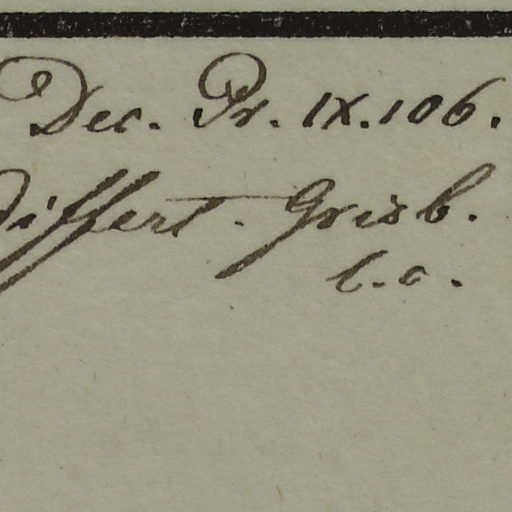 Dec. Pr. IX. 106.
differt. Griseb.
l.c.